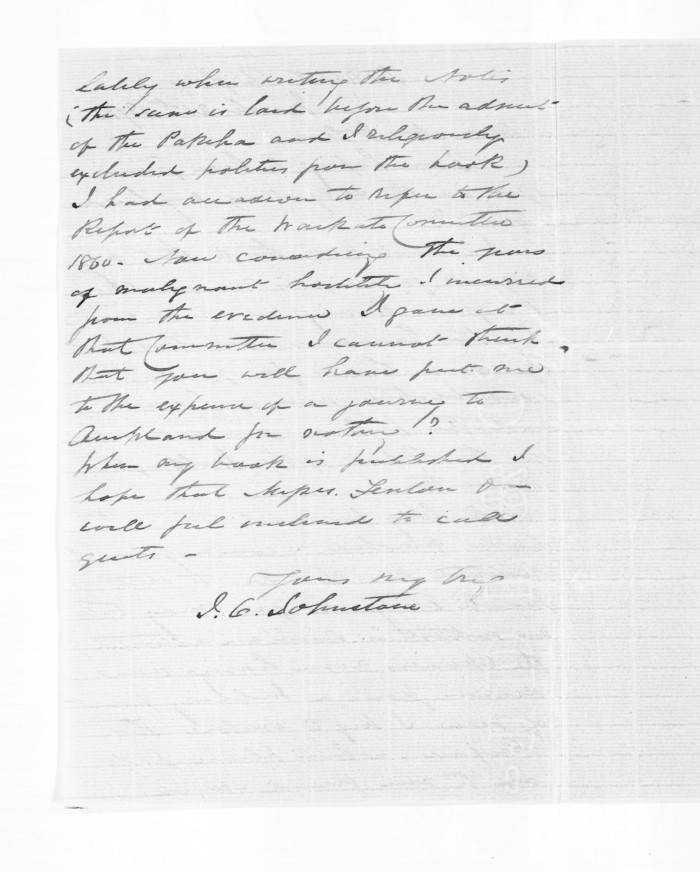 Lately when writing the Notes
(the scene is laid before the advent
of the Pakeha and I religiously
excluded politics from the book)
I had occasion to refer to the
Report of the Waikato Committee
1860. Now considering the years
of malignant hostility I incurred
from the evidence I gave at
that Committee I cannot think
that you will have put me
to the expense of a journey to
Auckland for nothing!?
When my book is published I
hope that Messrs. Fenlon
will feel inclined to call
quits -
Yours very truly
J. C. Johnstone